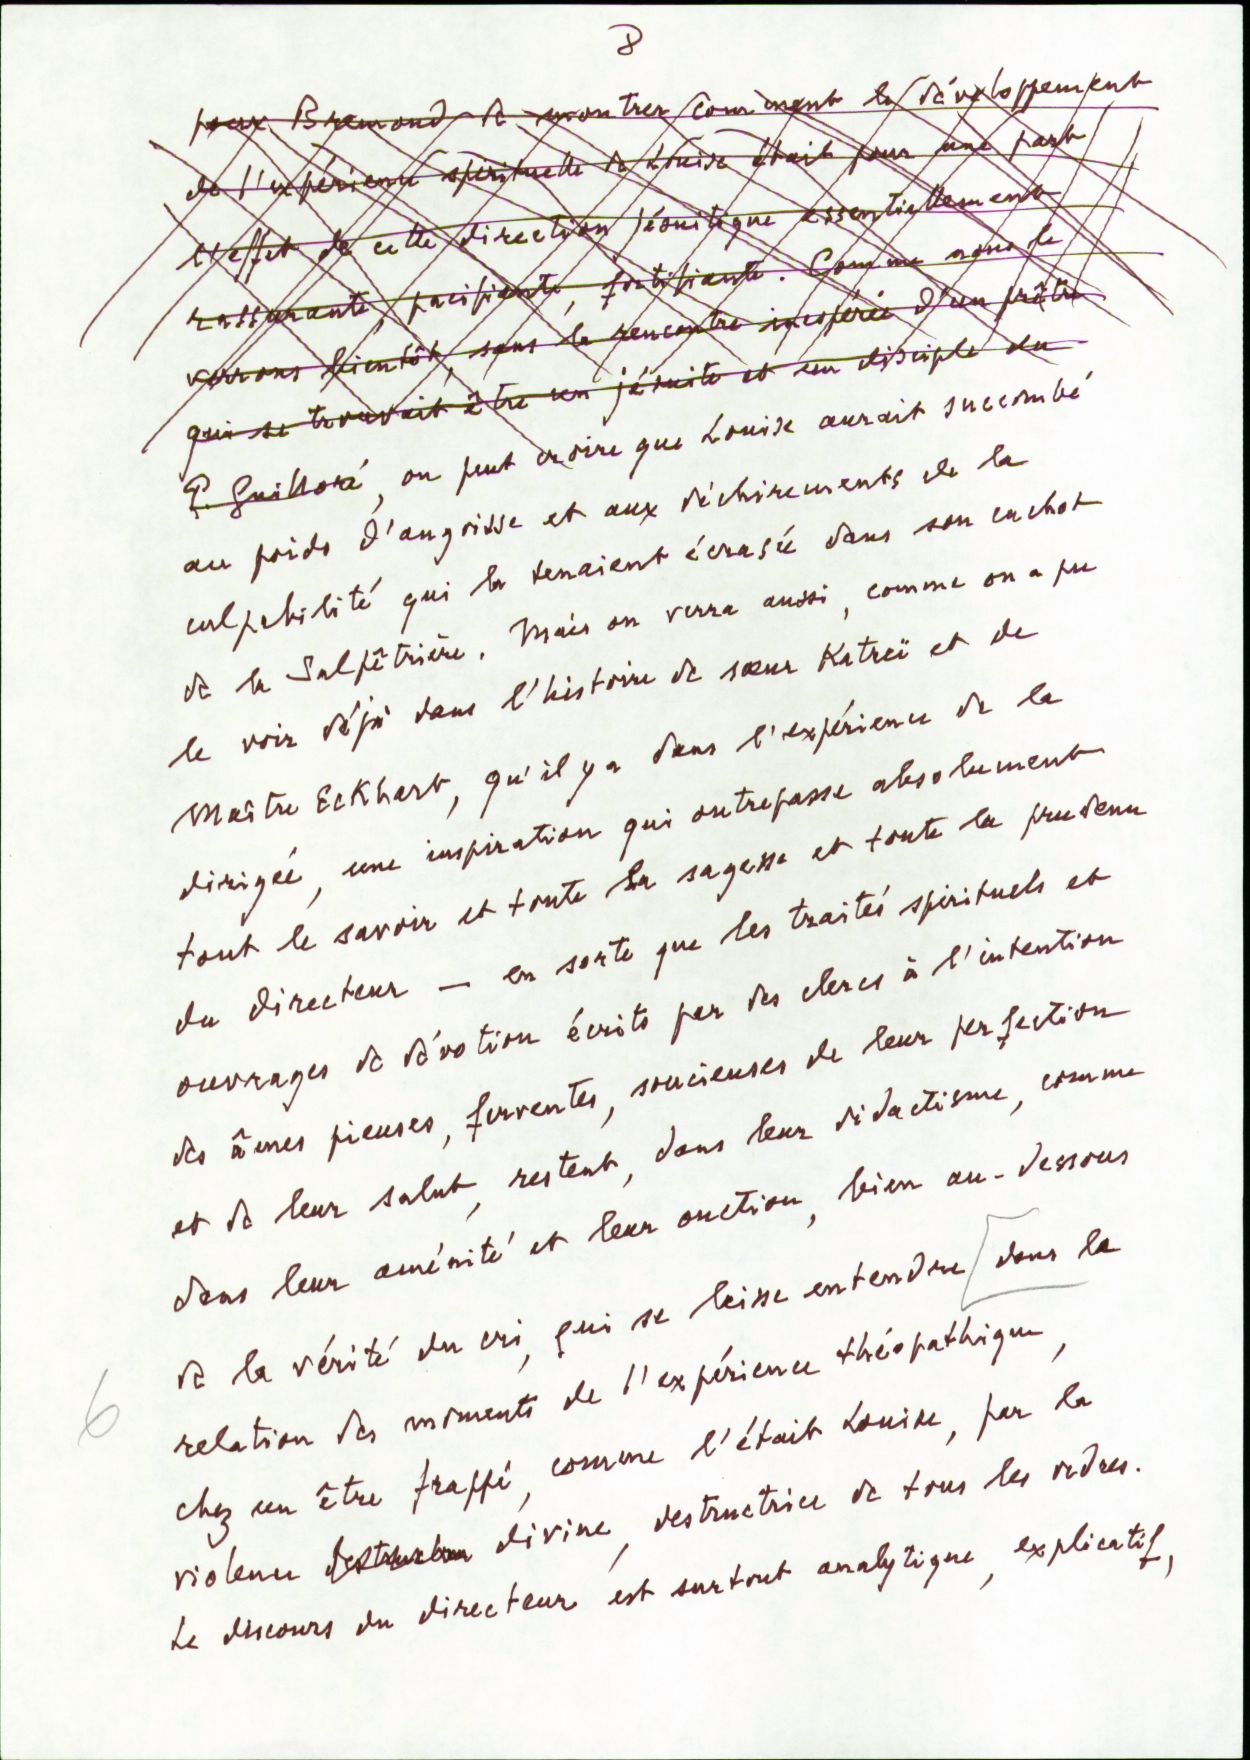 8
pour Bremond de montrer comment le développement
de l'expérience spirituelle de Louise était pour une part
l'effet de cette direction jésuitique essentiellement
rassurante, pacifiante, fortifiante. Comme nous le
verrons bientôt, sans la rencontre inespérée d'un prêtre
qui se trouvait être un jésuite et un disciple du
P. Guilloré, on peut croire que Louise aurait succombé
au poids d'angoisse et aux déchirements de la
culpabilité qui la tenaient écrasée dans son cachot
de la Salpêtrière. Mais on verra aussi, comme on a pu
le voir déjà dans l'histoire de sœur Katreï et de
Maître Eckhart, qu'il y a dans l'expérience de la
dirigée, une inspiration qui outrepasse absolument
tout le savoir et toute la sagesse et toute la prudence
du directeur — en sorte que les traités spirituels et
ouvrages de dévotion écrits par des clercs à l'intention
des âmes pieuses, ferventes, soucieuses de leur perfection
et de leur salut, restent, dans leur didactisme, comme
dans leur aménité et leur onction, bien au-dessous
de la vérité du cri, qui se laisse entendre [dans la
relation des moments de l'expérience théopathique,
6
chez un être frappé, comme l'était Louise, par la
violence divine, destructrice de tous les ordres.
Le discours du directeur est surtout analytique, explicatif,